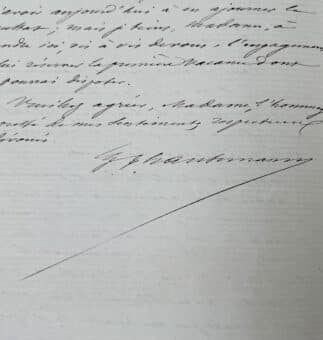 avoir aujourd'hui à en ajourner le
, mais je tiens, Madame, à
ici, vis à vis de vous, l'engagement
lui réserver la première vacance dont
pourrai disposer.
Veuillez agréer, Madame, l'hommage
de mes sentiments respectueux
dévoués
G. Haussmann